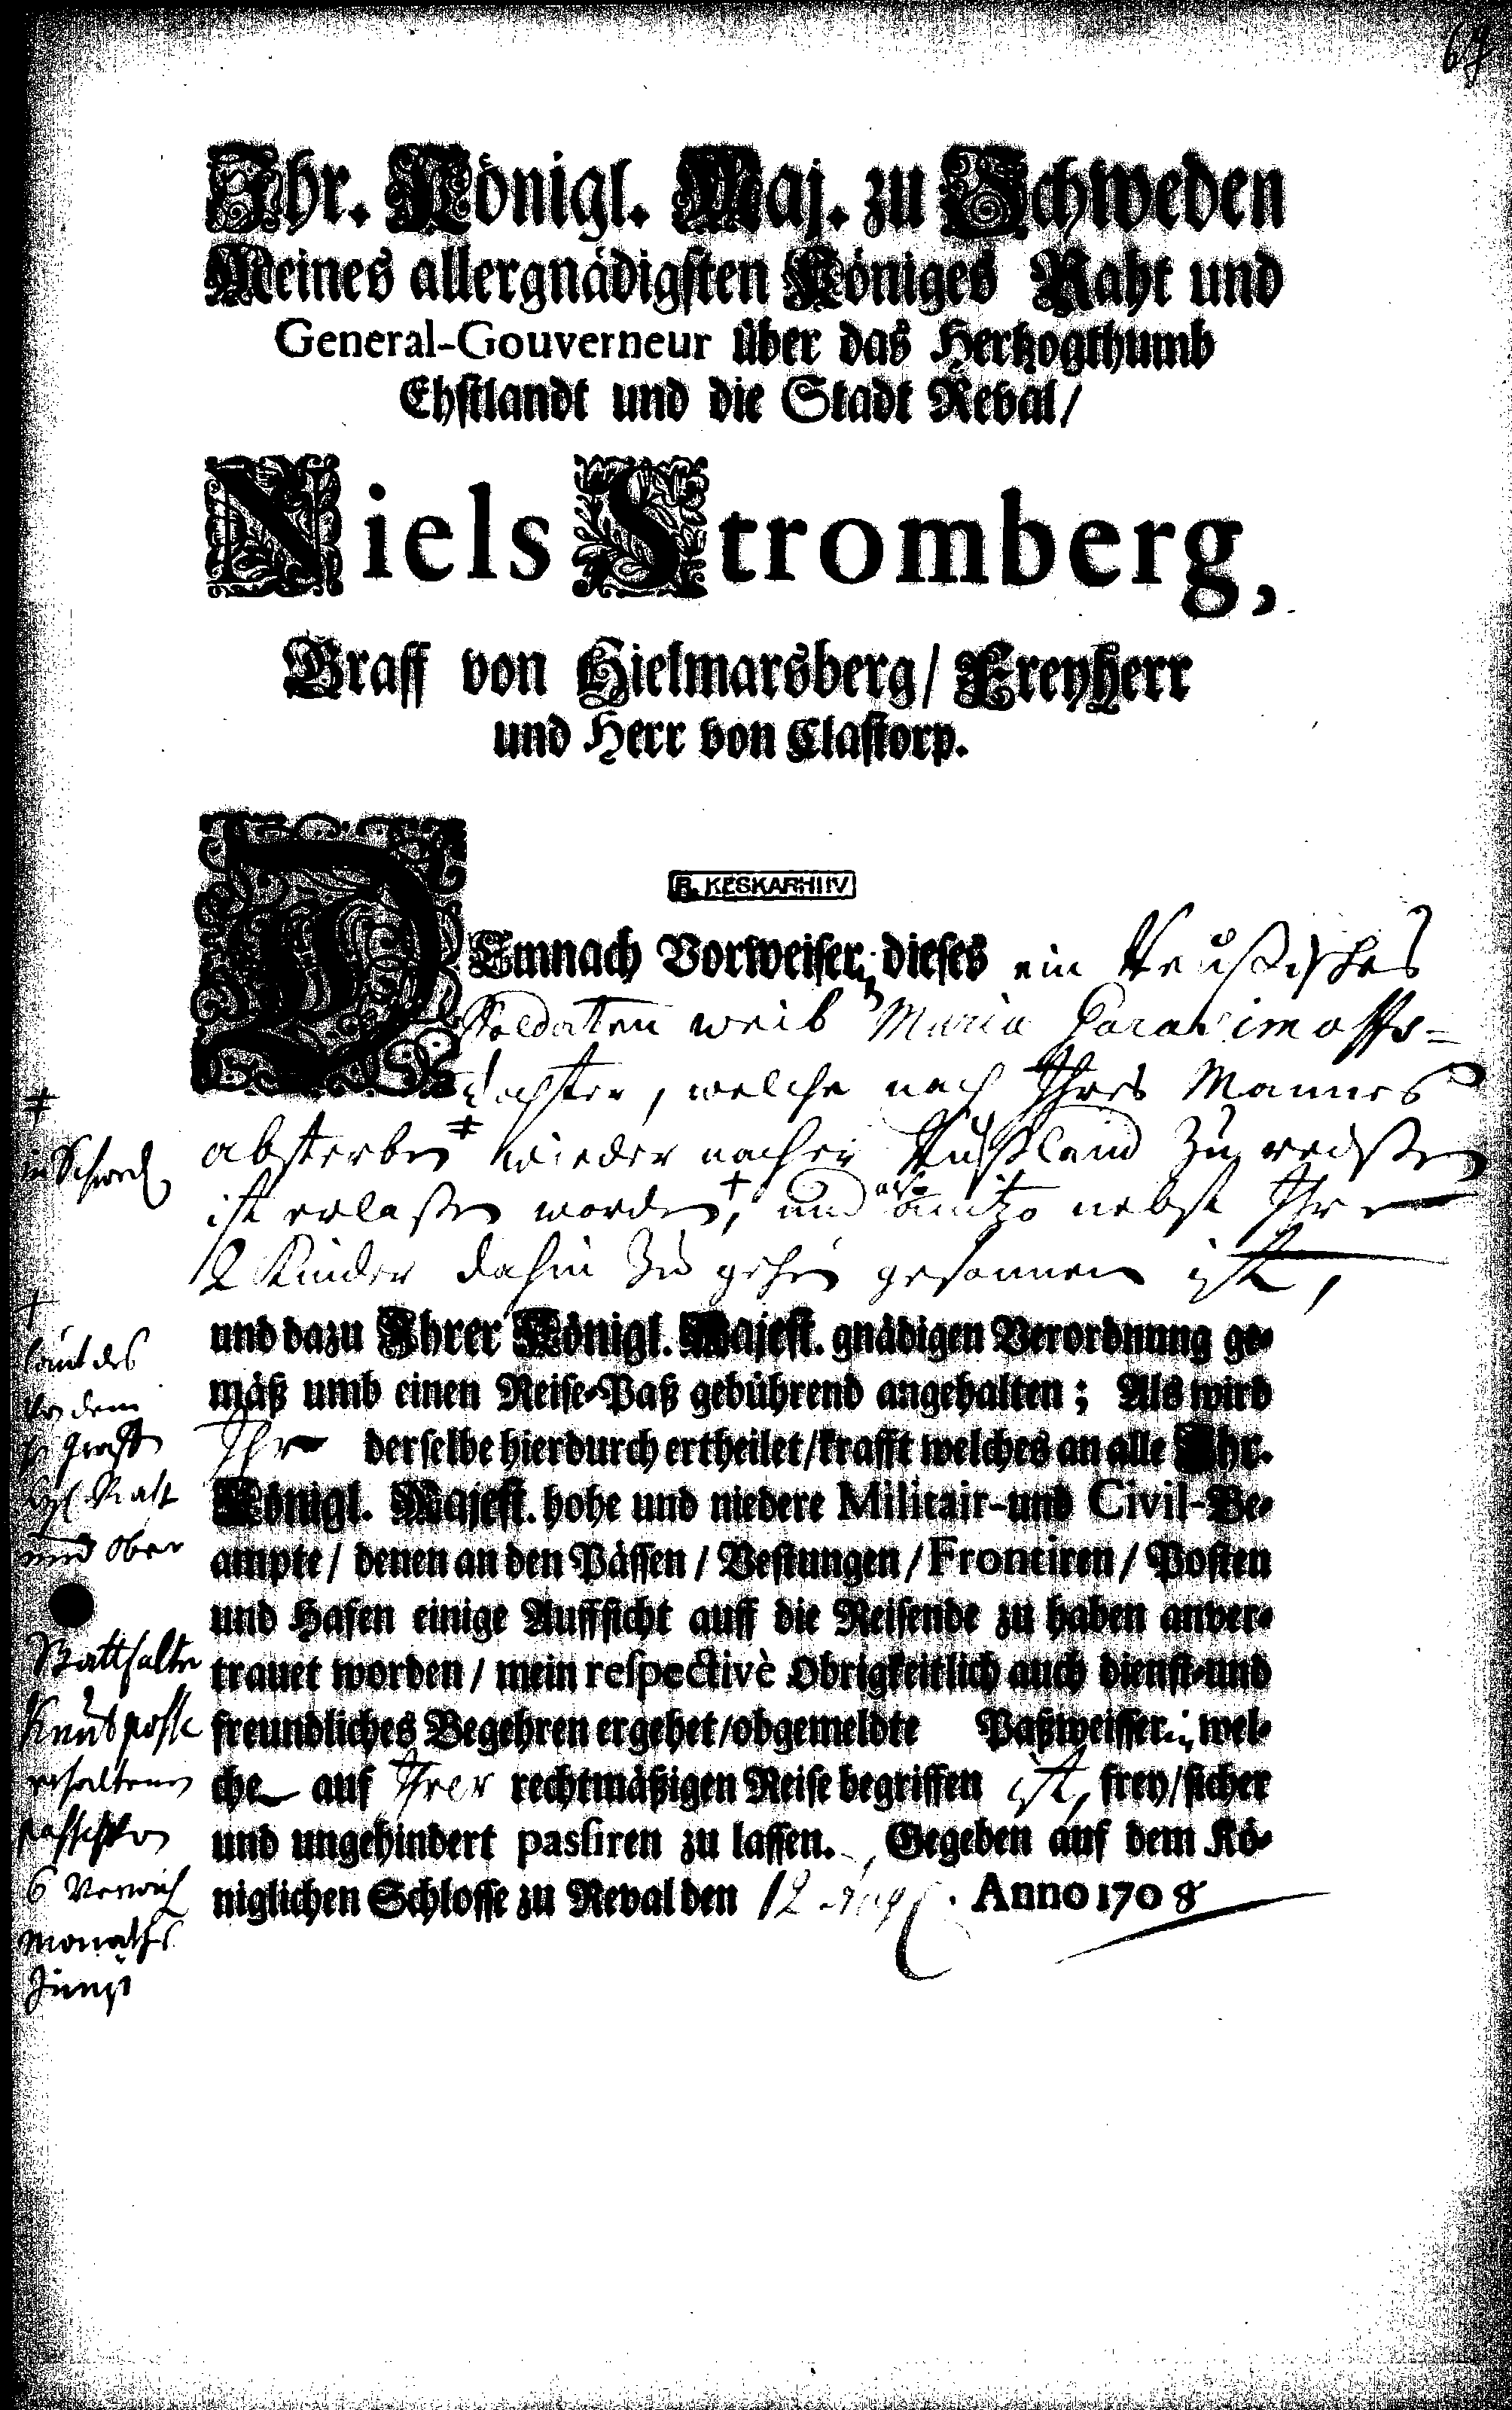 69
Ihr. Königl. Maj. zu Schweden
Meines allergnädigsten Königes Raht und
General-Gouverneur über das Hertzogthumb
Ehstlandt und die Stadt Reval/
Niels Stromberg,
Graff von Hielmarsberg/ Freyherr
und Herr von Clastorp.
R. KESKARHIIV
DEmnach Vorweiser dieses ein Reußisches
Soldaten weib Maria
dochter, welche nach Ihres Mannes
absterben ǂ wieder nacher Rußland zu reißen
ist erlaßen worden, + und anitzo nebst Ihre
2 Kinder dahin zu gehen gesonnen ist,
und dazu Ihrer Königl. Majest. gnädigen Verordnung ge-
mäß umb einen Reise-Paß gebührend angehalten; Als wird
Ihr derselbe hierdurch ertheilet/krafft welches an alle Ihr.
Königl. Majest. hohe und niedere Militair-und Civil-Be-
ampte/ denen an den Pässen/ Vestungen/Frontiren/ Posten
und Hafen einige Auffsicht auff die Reisende zu haben anver-
trauet worden/ mein respectivè Obrigkeitlich auch dienst-und
freundliches Begehren ergehet/obgemeldte Paßweisserin, wel-
che auf Ihrer rechtmäßigen Reise begriffen ist, frey/sicher
und ungehindert passiren zu lassen. Gegeben auf dem Kö-
niglichen Schlosse zu Reval den 12 Aug. Anno 1708
ǂ
in Schwed
+
laut des
von dem
Raht
und Ober
Statthalter
Knut posse
erhaltenen
passes von
6
Monaths
Juny